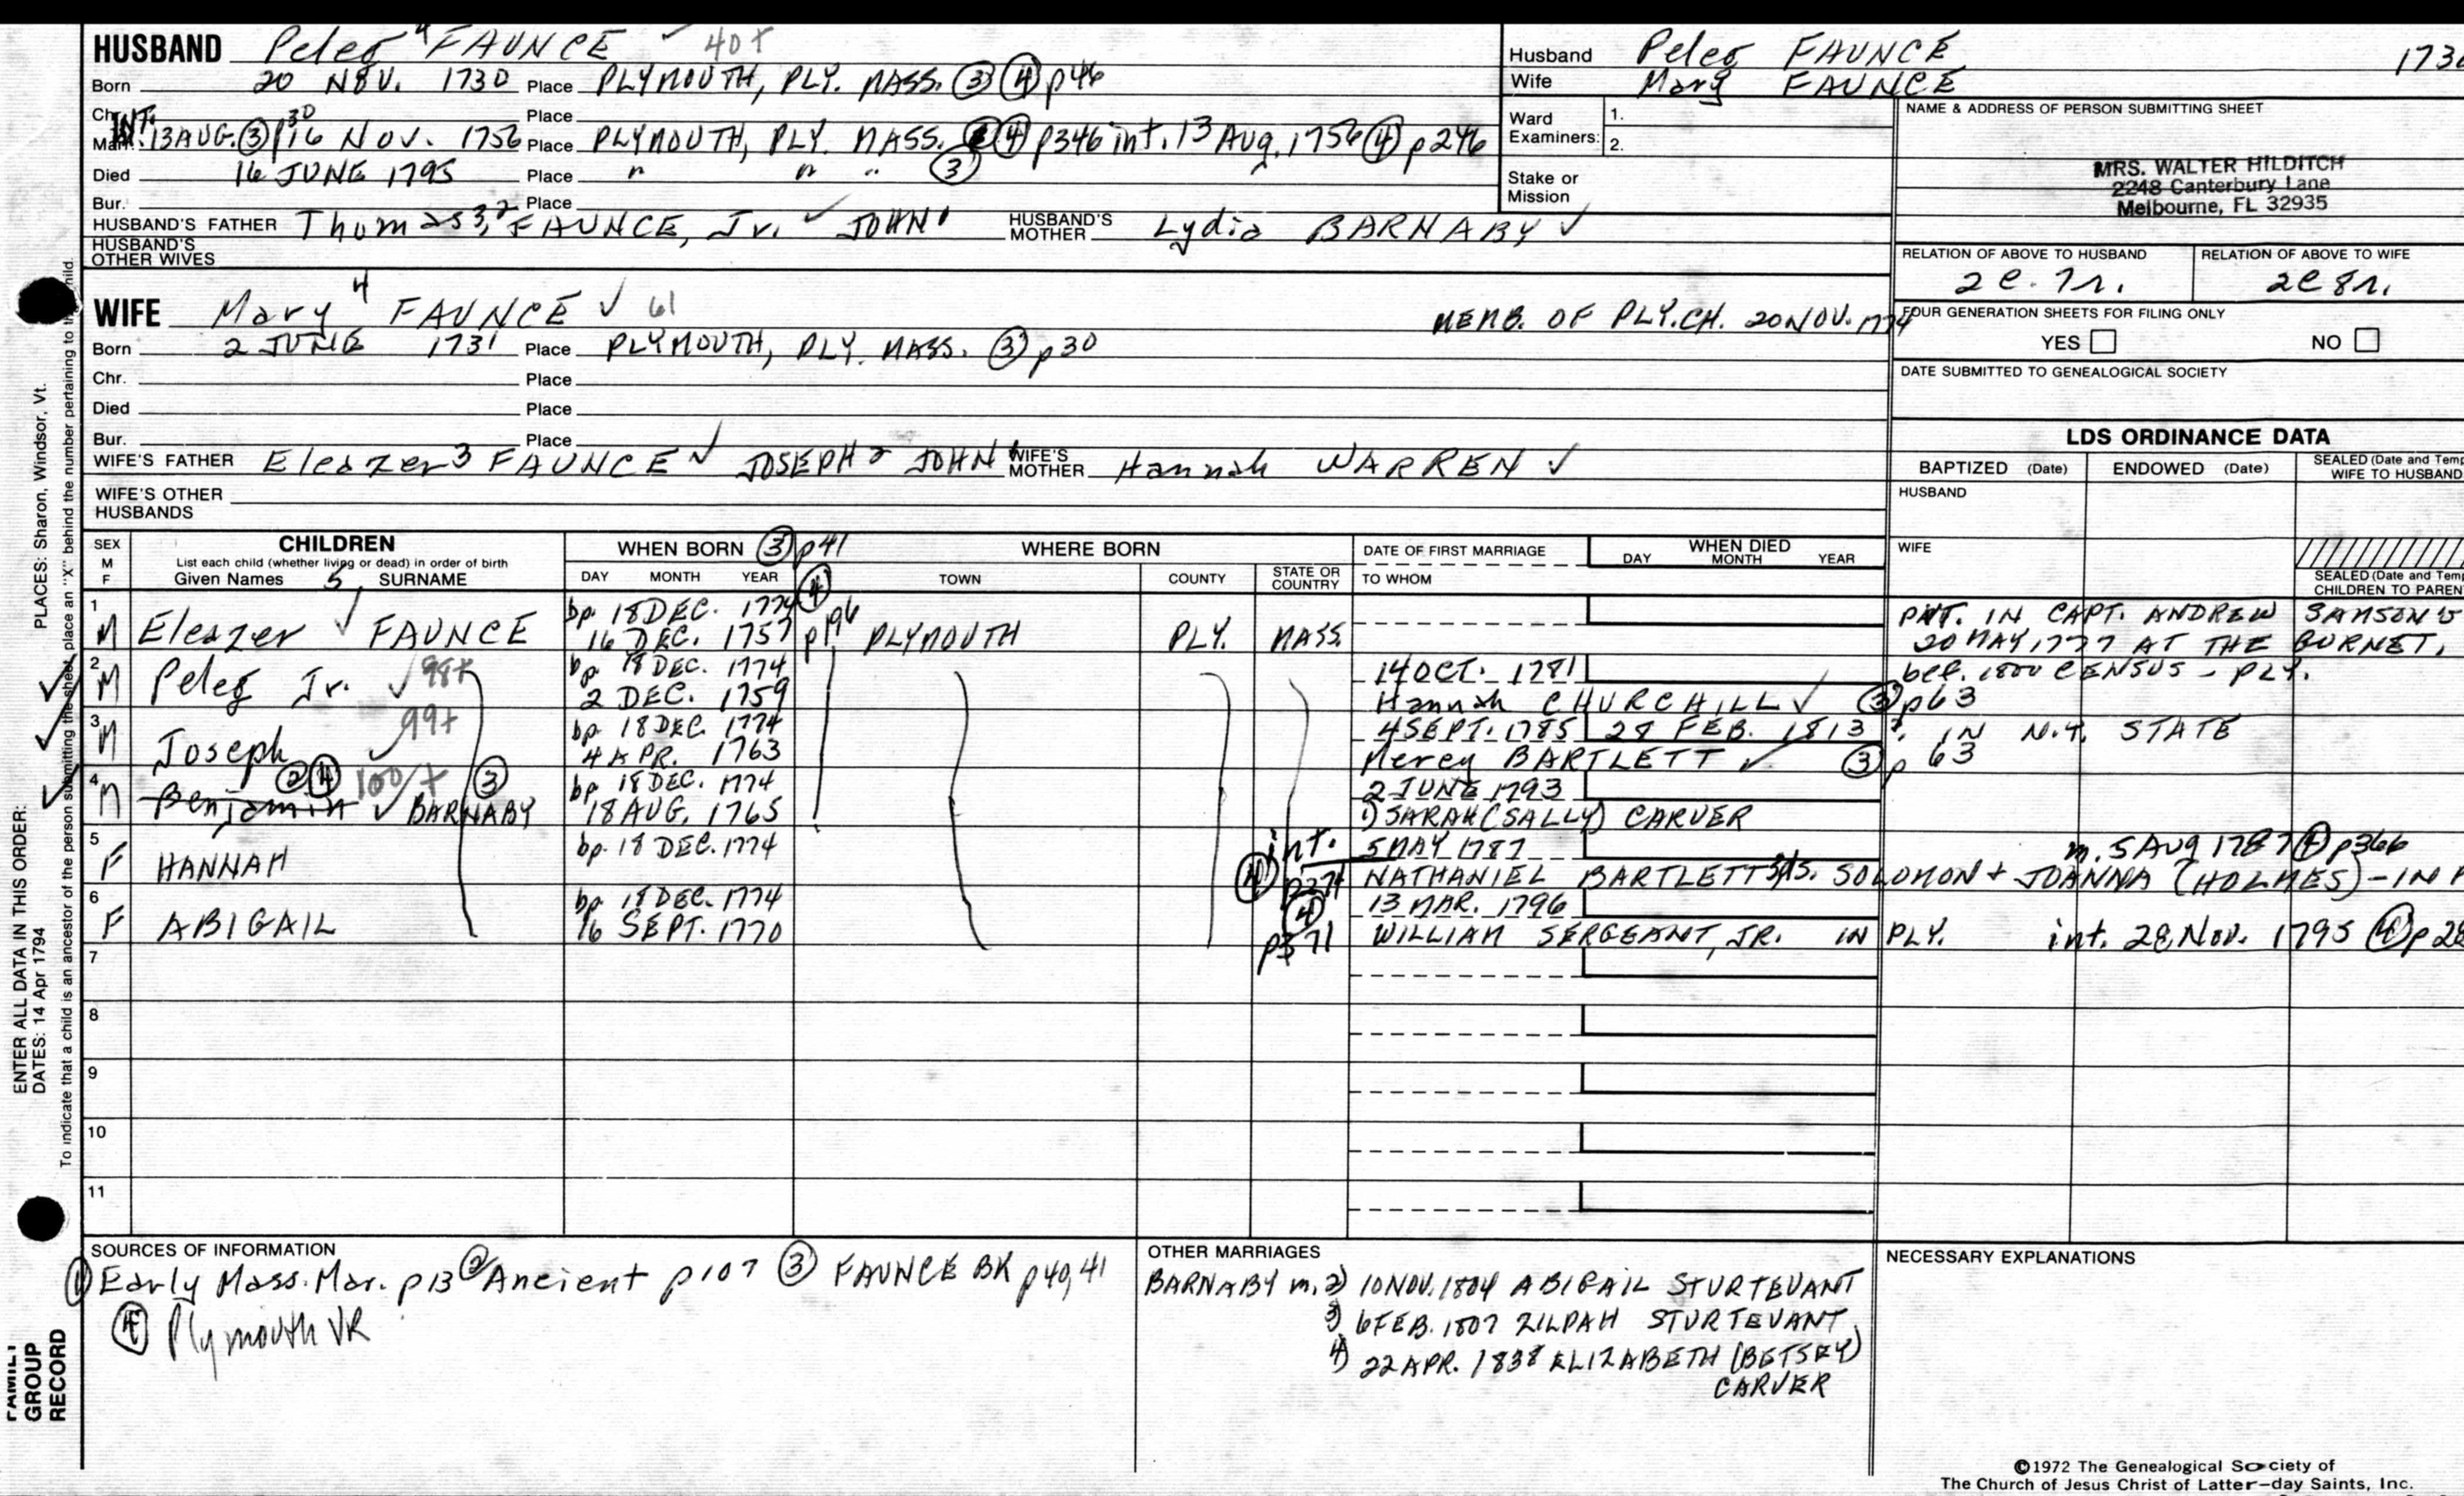 HUSBAND Peleg 4 FAUNCE ✓ 40+
Born 20 NOV. 1730 Place PLYMOUTH, PLY. MASS. ③ ④ p46
Chr. Place
INT. 13 AUG. ③ p30 16 NOV. 1756 Place PLYMOUTH, PLY. MASS. ④ p346 int. 13 Aug. 1756 ④ p246
Died 16 JUNE 1795 Place " " " ③
Bur. Place
HUSBAND'S FATHER Thomas 3, 2 FAUNCE, Jr. ✓ JOHN 1 HUSBAND'S MOTHER Lydia BARNABY ✓
HUSBAND'S OTHER WIVES
WIFE Mary 4 FAUNCE ✓ 61 MEMB. OF PLY. CH. 20 NOV. 1774
Born 2 JUNE 1731 Place PLYMOUTH, PLY. MASS. ③ p30
Chr. Place
Died Place
Bur. Place
WIFE'S FATHER Eleazer 3 FAUNCE ✓ JOSEPH 2 JOHN 1 WIFE'S MOTHER Hannah WARREN ✓
WIFE'S OTHER HUSBANDS
Husband Peleg FAUNCE
Wife Mary FAUNCE
Ward Examiners: 1.
2.
Stake or Mission
NAME & ADDRESS OF PERSON SUBMITTING SHEET
MRS. WALTER HILDITCH
2248 Canterbury Lane
Melbourne, FL 32935
RELATION OF ABOVE TO HUSBAND RELATION OF ABOVE TO WIFE
2c. 7r. 2c 8r.
FOUR GENERATION SHEETS FOR FILING ONLY
YES NO
DATE SUBMITTED TO GENEALOGICAL SOCIETY
LDS ORDINANCE DATA
BAPTIZED (Date) ENDOWED (Date) SEALED (Date and Temp
WIFE TO HUSBAND
HUSBAND
WIFE
SEALED (Date and Temp
CHILDREN TO PAREN
SEX M F CHILDREN WHEN BORN ③ p41 WHERE BORN DATE OF FIRST MARRIAGE WHEN DIED
List each child (whether living or dead) in order of birth
Given Names 5 SURNAME DAY MONTH YEAR ④ TOWN COUNTY STATE OR COUNTRY TO WHOM DAY MONTH YEAR
1 bp. 18 DEC. 1774 PVT. IN CAPT. ANDREW SAMSON'S
M Eleazer ✓ FAUNCE 16 DEC. 1757 p196 PLYMOUTH PLY. MASS. 20 MAY, 1777 AT THE GURNET.
2 bp. 18 DEC. 1774 14 OCT. 1781 bef. 1800 CENSUS - PLY.
M Peleg Jr. ✓ 98+ 2 DEC. 1759 Hannah CHURCHILL ✓ ③ p63
3 bp 18 DEC. 1774 4 SEPT. 1785 28 FEB. 1813 ? IN N.Y. STATE
M Joseph ✓ 99+ 4 APR. 1763 Mercy BARTLETT ✓ ③ p 63
4 ② ④ 100/+ ③ bp 18 DEC. 1774 2 JUNE 1793
M Benjamin ✓ BARNABY 18 AUG. 1765 1) SARAH (SALLY) CARVER
5 bp. 18 DEC. 1774 int. 5 MAY 1787 m. 5 Aug 1787 ④ p366
F HANNAH ④ NATHANIEL BARTLETT S. SOLOMON + JOANNA (HOLMES) - IN
6 bp. 18 DEC. 1774 13 MAR. 1796
F ABIGAIL 16 SEPT. 1770 ④ p371 WILLIAM SERGEANT, JR. IN PLY. int. 28 Nov. 1795 ④ p 28
7
8
9
10
11
SOURCES OF INFORMATION
① Early Mass. Mar. p13 ② Ancient p107 ③ FAUNCE BK p40, 41
④ Plymouth VR
OTHER MARRIAGES
BARNABY m. 2) 10 NOV. 1804 ABIGAIL STURTEVANT
3) 6 FEB. 1807 ZILPAH STURTEVANT
4) 22 APR. 1838 ELIZABETH (BETSEY)
CARVER
NECESSARY EXPLANATIONS
©1972 The Genealogical Society of
The Church of Jesus Christ of Latter-day Saints, Inc.
ENTER ALL DATA IN THIS ORDER:
DATES: 14 Apr 1794 PLACES: Sharon, Windsor, Vt.
To indicate that a child is an ancestor of the person submitting the sheet, place an "X" behind the number pertaining to that child.
FAMILY
GROUP
RECORD